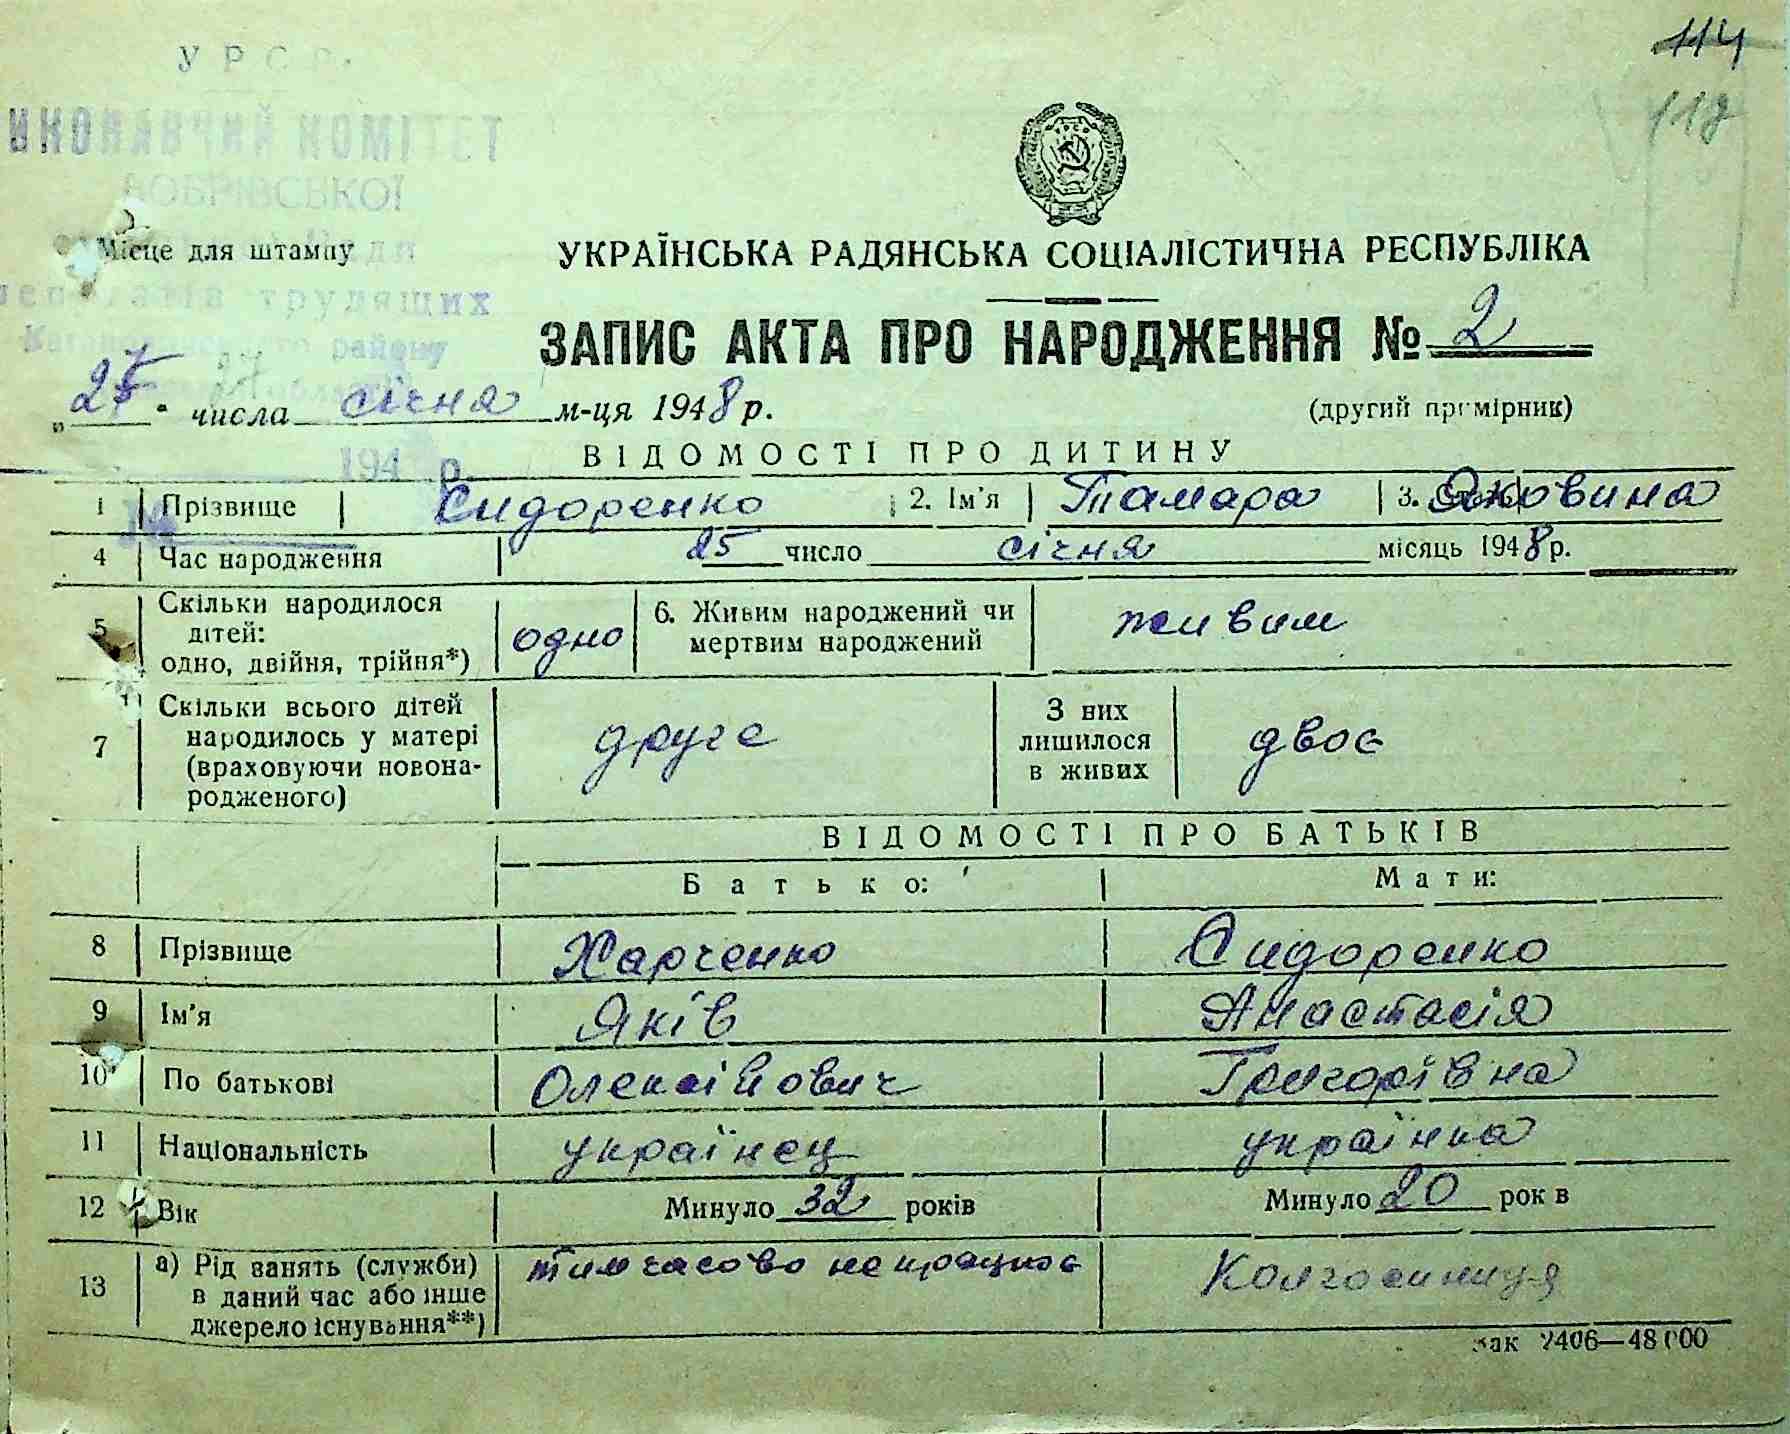 114
118
У Р С Р
ВИКОНАВЧИЙ КОМІТЕТ
БОБРІВСЬКОЇ
депутатів трудящих
району
194 р.
№
Місце для штампу
УКРАЇНСЬКА РАДЯНСЬКА СОЦІАЛІСТИЧНА РЕСПУБЛІКА
ЗАПИС АКТА ПРО НАРОДЖЕННЯ № 2
„27" числа січня м-ця 1948 р.
(другий примірник)
ВІДОМОСТІ ПРО ДИТИНУ
1 Прізвище Сидоренко 2. Ім'я Тамара 3. Яковина
4 Час народження 25 число січня місяць 1948 р.
5 Скільки народилося дітей: одно, двійня, трійня*) одно 6. Живим народжений чи мертвим народжений живим
7 Скільки всього дітей народилось у матері (враховуючи новонародженого) друге З них лишилося в живих двоє
ВІДОМОСТІ ПРО БАТЬКІВ
Батько: Мати:
8 Прізвище Харченко Сидоренко
9 Ім'я Яків Анастасія
10 По батькові Олексійович Григорівна
11 Національність українец українка
12 Вік Минуло 32 років Минуло 20 років
13 а) Рід занять (служби) в даний час або інше джерело існування**) тимчасово не працює Колгоспниця
Зак 2406—48000